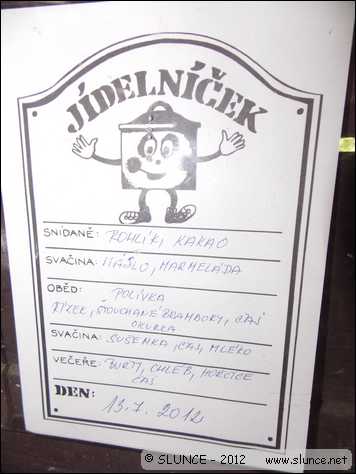 JÍDELNÍČEK
SNÍDANĚ: ROHLÍK, KAKAO
SVAČINA: MÁSLO, MARMELÁDA
OBĚD: POLÍVKA
ŘÍZEK, ŠŤOUCHANÉ BRAMBORY, ČAJ
OKURKA
SVAČINA: SUŠENKA, ČAJ, MLÉKO
VEČEŘE: BUŘTY, CHLÉB, HOŘČICE
ČAJ
DEN: 13.7.2012
© SLUNCE - 2012 www.slunce.net